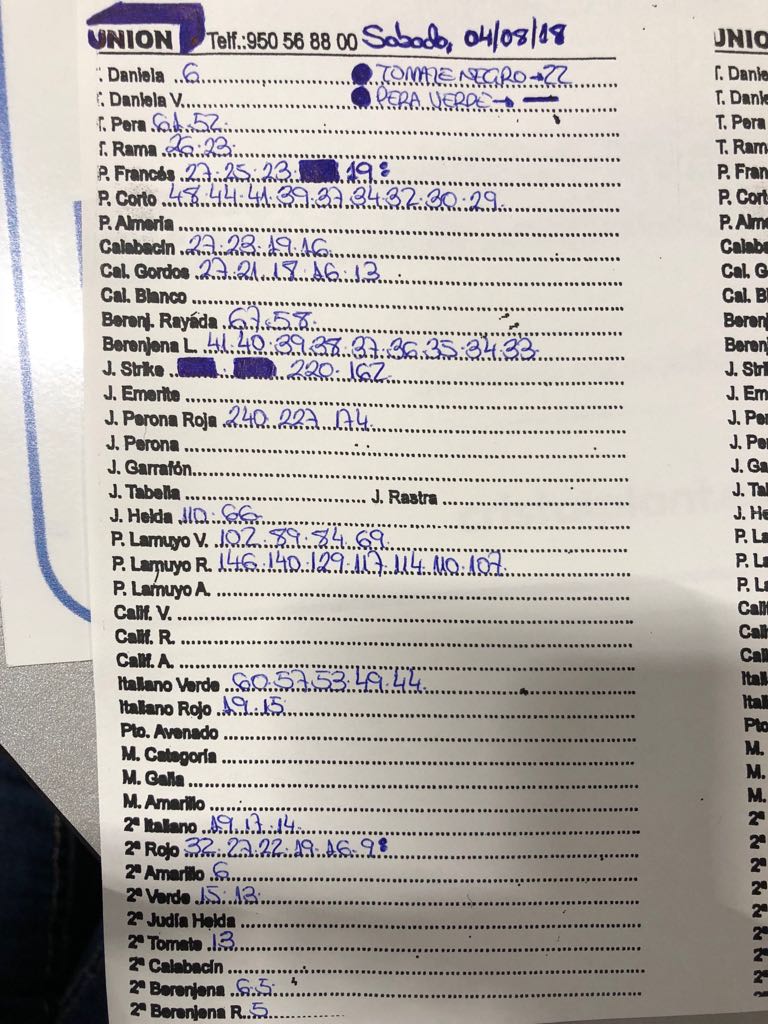 UNION Telf.:950 56 88 00 Sabado, 04/08/18
T. Daniela 6 TOMATE NEGRO→22
T. Daniela V. PERA VERDE→ —
T. Pera 61.52.
T. Rama 26.23.
P. Francés 27.25.23. 19:
P. Corto 48.44.41.39.37.34.32.30.29.
P. Almeria
Calabacín 27.23.19.16
Cal. Gordos 27.21.18.16.13
Cal. Blanco
Berenj. Rayáda 67.58.
Berenjena L. 41.40.39.38.37.36.35.34.33
J. Strike 220.162
J. Emerite
J. Perona Roja 240.227.174
J. Perona
J. Garrafón
J. Tabella J. Rastra
J. Helda 110.66
P. Lamuyo V. 102.89.84.69
P. Lamuyo R. 146.140.129.117.114.110.107
P. Lamuyo A.
Calif. V.
Calif. R.
Calif. A.
Italiano Verde 60.57.53.49.44
Italiano Rojo 19.15
Pto. Avenado
M. Categoría
M. Galia
M. Amarillo
2ª Italiano 19.17.14
2ª Rojo 32.27.22.19.16.9:
2ª Amarillo 6
2ª Verde 15.13
2ª Judía Helda
2ª Tomate 13
2ª Calabacín
2ª Berenjena 6.5
2ª Berenjena R. 5